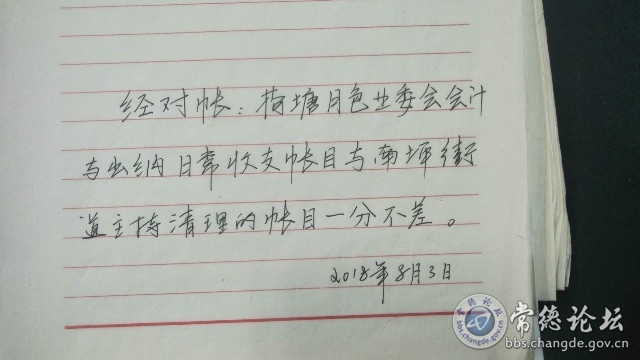 经对帐：荷塘月色业委会会计
与出纳日常收支帐目与南坪街
道主持清理的帐目一分不差。
2018年8月3日
常德论坛
bbs.changde.gov.cn